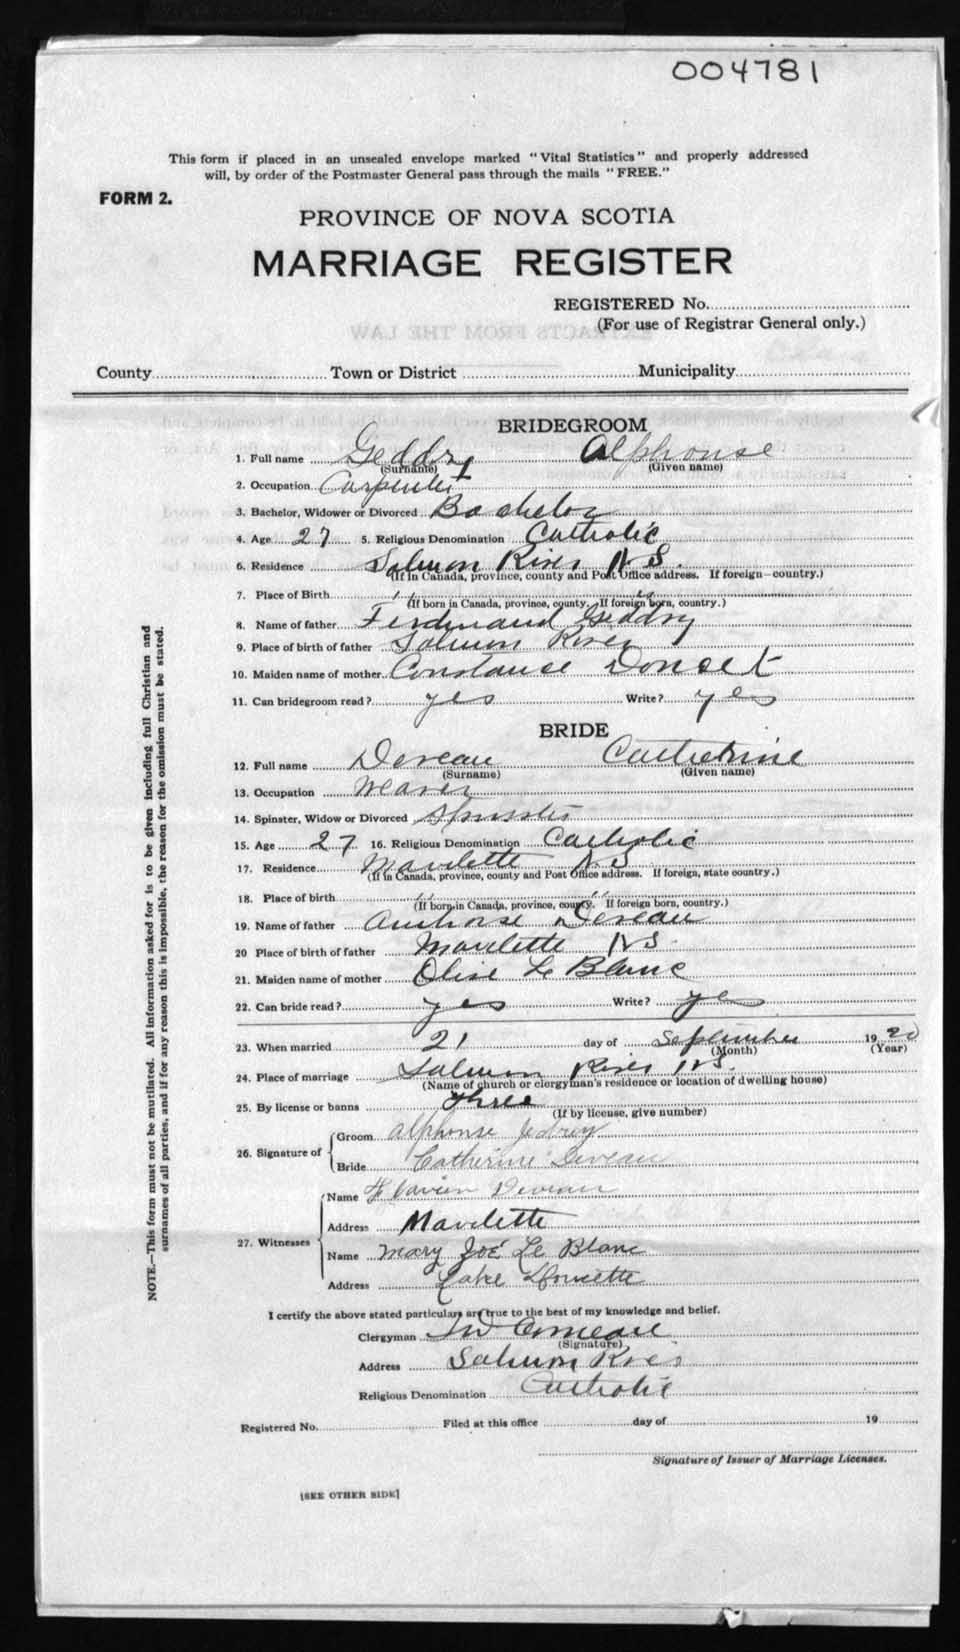 004781
This form if placed in an unsealed envelope marked "Vital Statistics" and properly addressed
will, by order of the Postmaster General pass through the mails "FREE."
FORM 2.
PROVINCE OF NOVA SCOTIA
MARRIAGE REGISTER
REGISTERED No.
(For use of Registrar General only.)
EXTRACTS FROM THE LAW
County Town or District Municipality
BRIDEGROOM
1. Full name Geddry Alphonse
(Surname) (Given name)
2. Occupation Carpenter
3. Bachelor, Widower or Divorced Bachelor
4. Age 27 5. Religious Denomination Catholic
6. Residence Salmon River N S.
(If in Canada, province, county and Post Office address. If foreign—country.)
7. Place of Birth " "
(If born in Canada, province, county. If foreign born, country.)
8. Name of father Ferdinand Geddry
9. Place of birth of father Salmon River
10. Maiden name of mother Constance Doucet
11. Can bridegroom read? yes Write? yes
BRIDE
12. Full name Deveau Catherine
(Surname) (Given name)
13. Occupation Weaver
14. Spinster, Widow or Divorced Spinster
15. Age 27 16. Religious Denomination Catholic
17. Residence Mavilette N S
(If in Canada, province, county and Post Office address. If foreign, state country.)
18. Place of birth " "
(If born in Canada, province, county. If foreign born, country.)
19. Name of father Ambroise Deveau
20 Place of birth of father Mavilette N S.
21. Maiden name of mother Olive Le Blanc
22. Can bride read? yes Write? yes
23. When married 21 day of September 1920
(Month) (Year)
24. Place of marriage Salmon River N S.
(Name of church or clergyman's residence or location of dwelling house)
25. By license or banns three
(If by license, give number)
26. Signature of Groom Alphonse Jedrey
Bride Catherine Deveau
27. Witnesses Name Flavien Deveau
Address Mavilette
Name Mary Joé Le Blanc
Address Lake Doucette
I certify the above stated particulars are true to the best of my knowledge and belief.
Clergyman Comeau
(Signature)
Address Salmon River
Religious Denomination Catholic
Registered No. Filed at this office day of 19
Signature of Issuer of Marriage Licenses.
[SEE OTHER SIDE]
NOTE.—This form must not be mutilated. All information asked for is to be given including full Christian and
surnames of all parties, and if for any reason this is impossible, the reason for the omission must be stated.